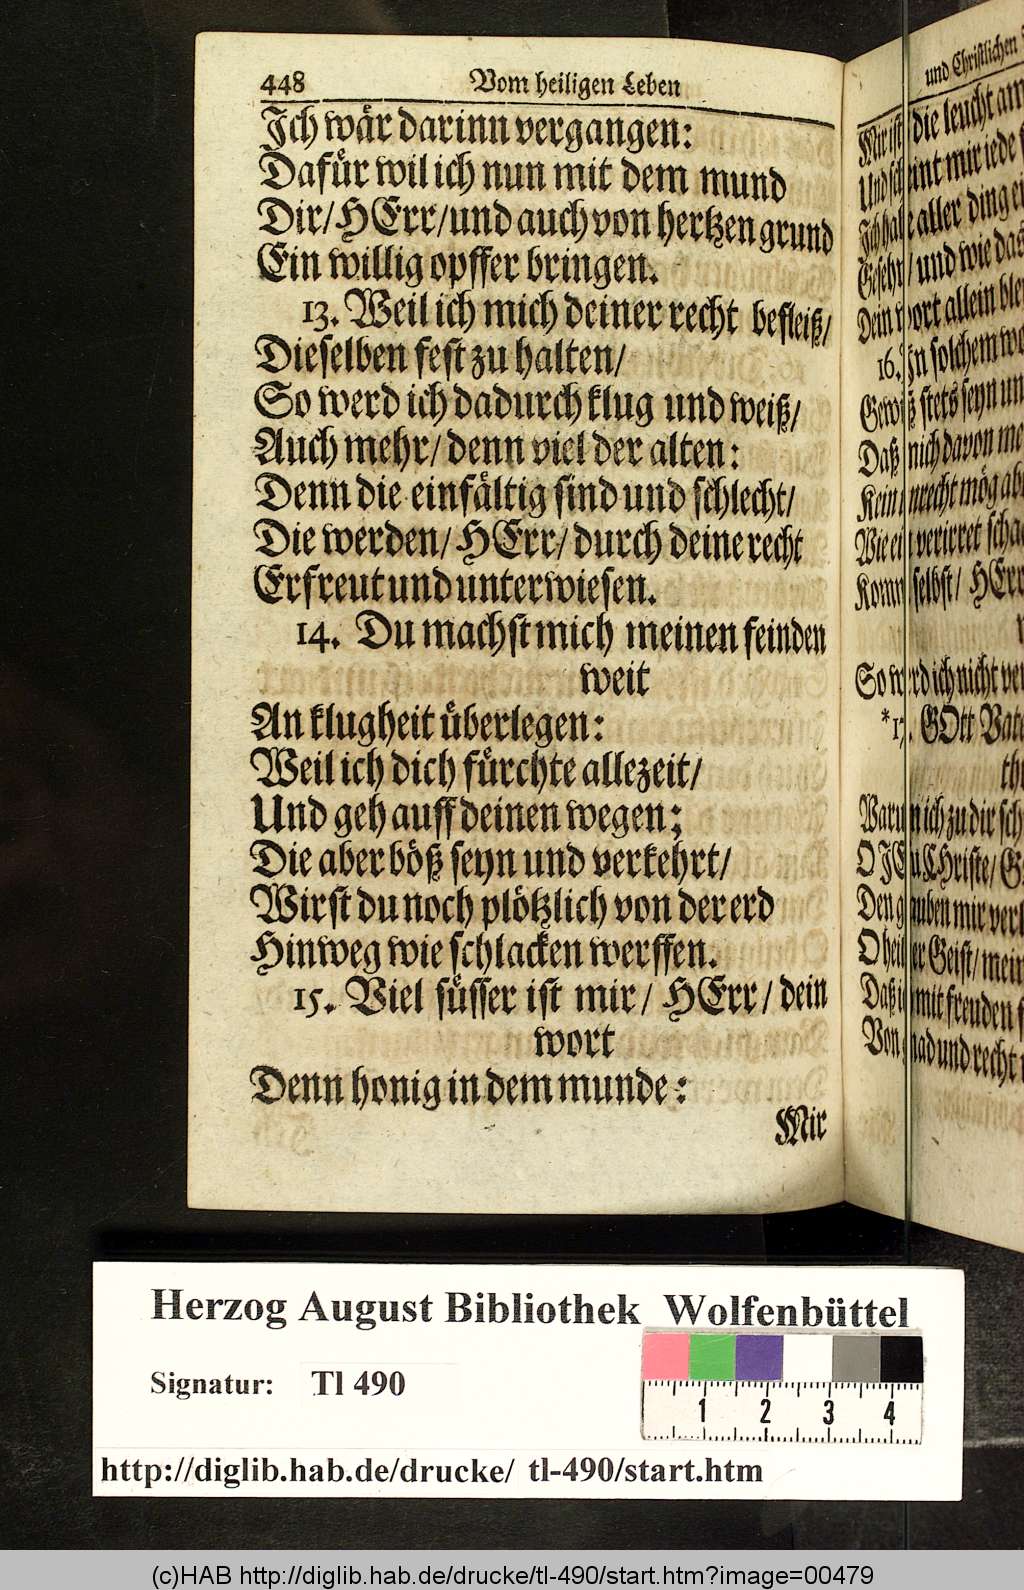 448 Vom heiligen Leben
Ich wär darinn vergangen:
Dafür wil ich nun mit dem mund
Dir/ HErr/ und auch von hertzen grund
Ein willig opffer bringen.
13. Weil ich mich deiner recht befleiß/
Dieselben fest zu halten/
So werd ich dadurch klug und weiß/
Auch mehr/ denn viel der alten:
Denn die einfältig sind und schlecht/
Die werden/ HErr/ durch deine recht
Erfreut und unterwiesen.
14. Du machst mich meinen feinden
weit
An klugheit überlegen:
Weil ich dich fürchte allezeit/
Und geh auff deinen wegen;
Die aber böß seyn und verkehrt/
Wirst du noch plötzlich von der erd
Hinweg wie schlacken werffen.
15. Viel süsser ist mir/ HErr/ dein
wort
Denn honig in dem munde:
Mir
und Christlichen
Mir ist die leucht
Und mir jede
Ich aller ding
und wie das
Dein wort allein
16. In solchem
stets seyn
Daß mich davon
Kein unrecht mög
Wie ein verirret
Komm selbst/ HErr
So werd ich nicht
*17. GOtt
Warum ich zu dir
O JEsu CHriste/
Den glauben mir
O heilger Geist/ mein
Daß ich mit freuden
Von gnad und recht
Herzog August Bibliothek Wolfenbüttel
Signatur: Tl 490
1 2 3 4
http://diglib.hab.de/drucke/ tl-490/start.htm
(c)HAB http://diglib.hab.de/drucke/tl-490/start.htm?image=00479